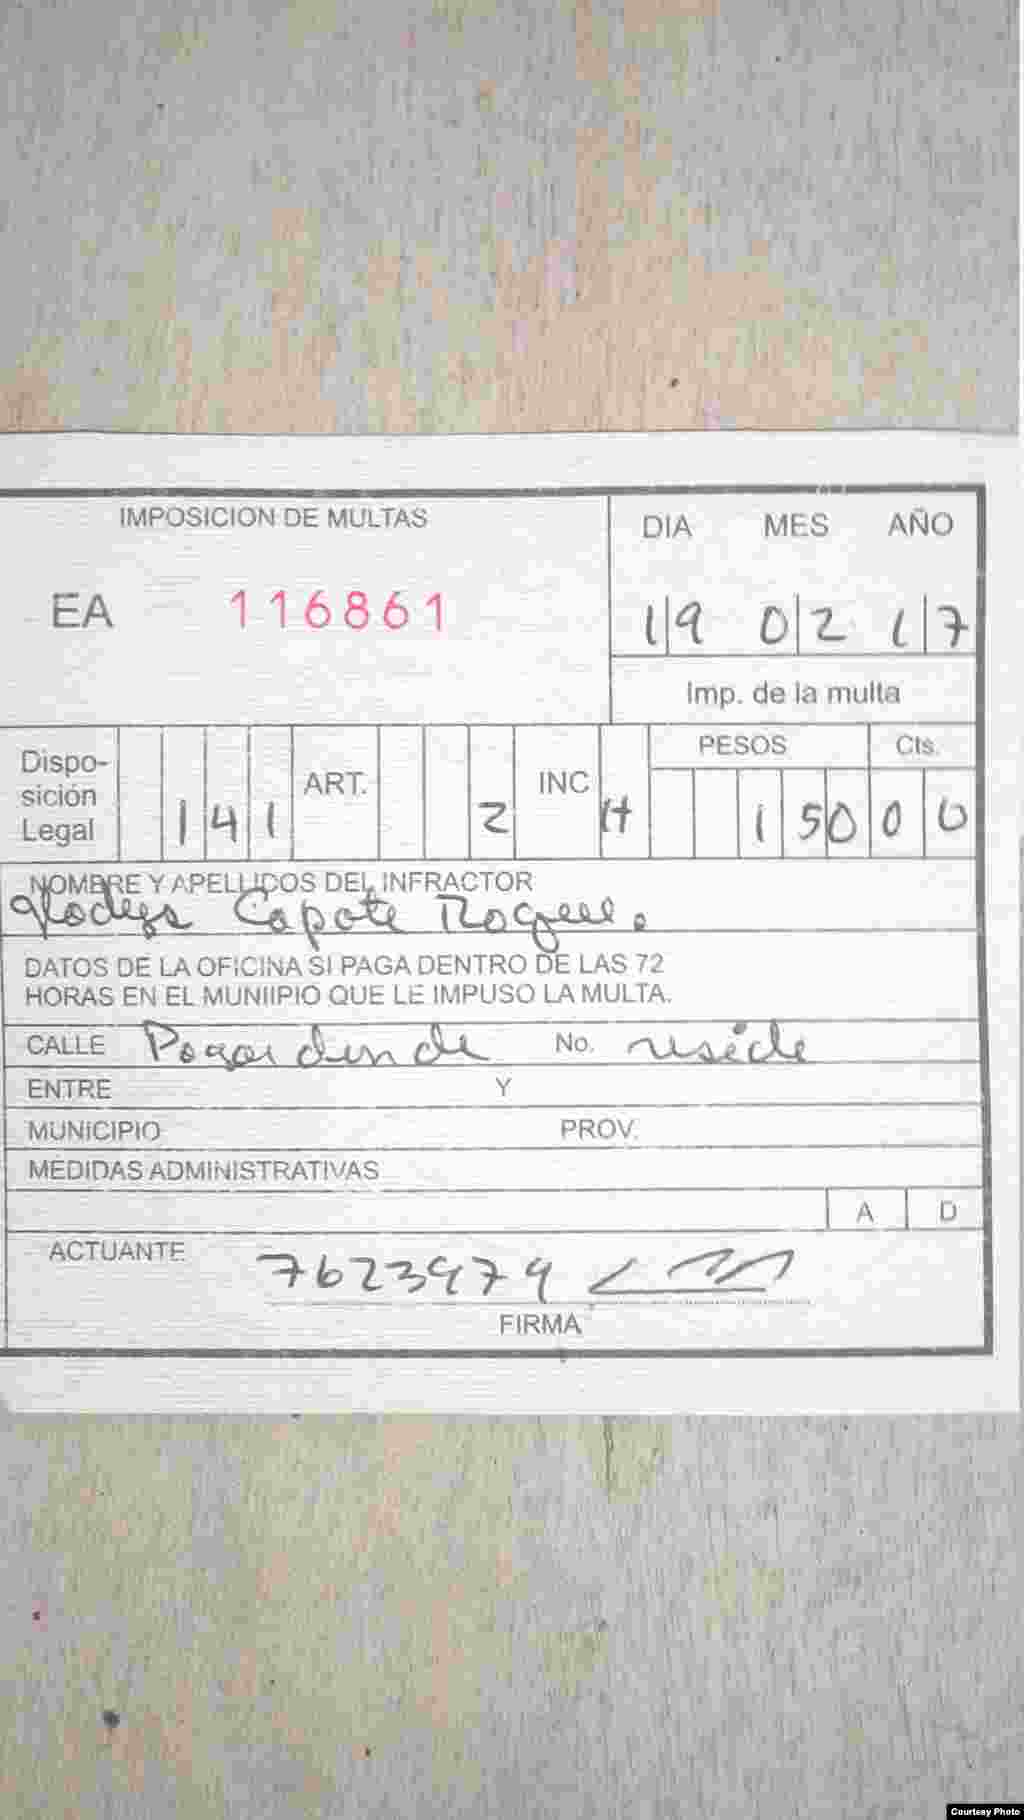 IMPOSICION DE MULTAS
DIA MES AÑO
EA 116861
19 02 17
Imp. de la multa
Dispo-
sición
Legal
141 ART. 2 INC H
PESOS Cts.
150 00
NOMBRE Y APELLIDOS DEL INFRACTOR
Gladys Capote Roque.
DATOS DE LA OFICINA SI PAGA DENTRO DE LAS 72
HORAS EN EL MUNIIPIO QUE LE IMPUSO LA MULTA.
CALLE Pagar donde No. reside
ENTRE Y
MUNICIPIO PROV.
MEDIDAS ADMINISTRATIVAS
A D
ACTUANTE 7623979
FIRMA
Courtesy Photo